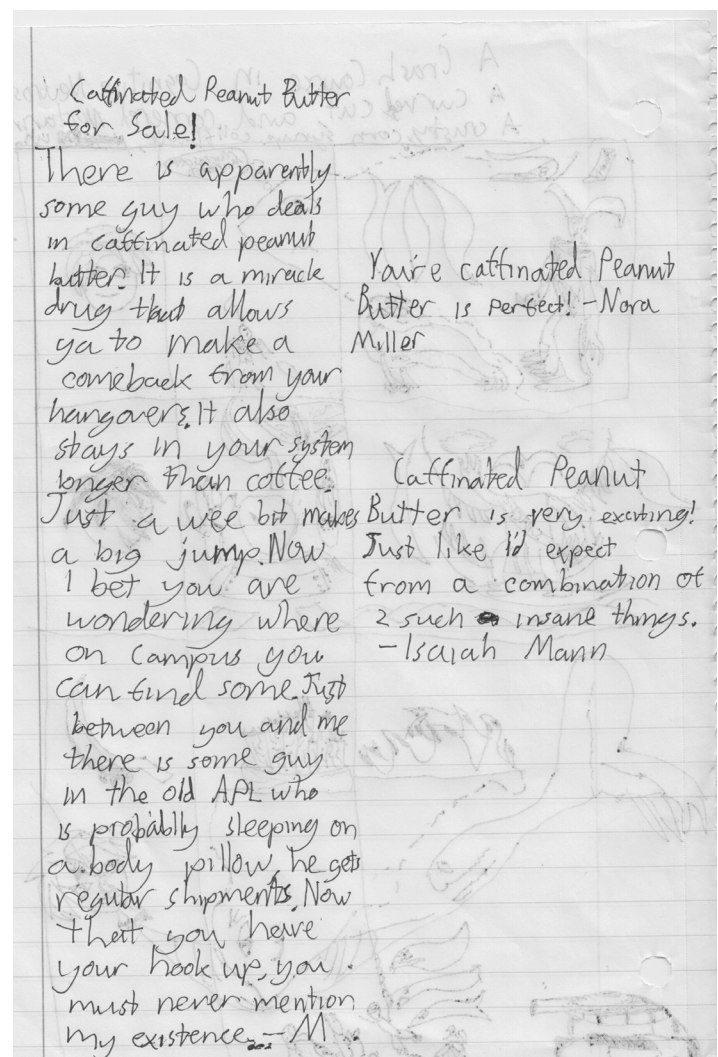 Caffinated Peanut Butter
for Sale!
There is apparently
some guy who deals
in caffinated peanut
butter. It is a miracle
drug that allows
ya to make a
comeback from your
hangovers. It also
stays in your system
longer than coffee.
Just a wee bit makes
a big jump. Now
I bet you are
wondering where
on campus you
can find some. Just
between you and me
there is some guy
in the old APL who
is probablly sleeping on
a body pillow, he gets
regular shipments. Now
that you have
your hook up, you
must never mention
my existence. - M
You're caffinated Peanut
Butter is perfect! - Nora
Miller
Caffinated Peanut
Butter is very exciting!
Just like I'd expect
from a combination of
2 such insane things.
- Isaiah Mann